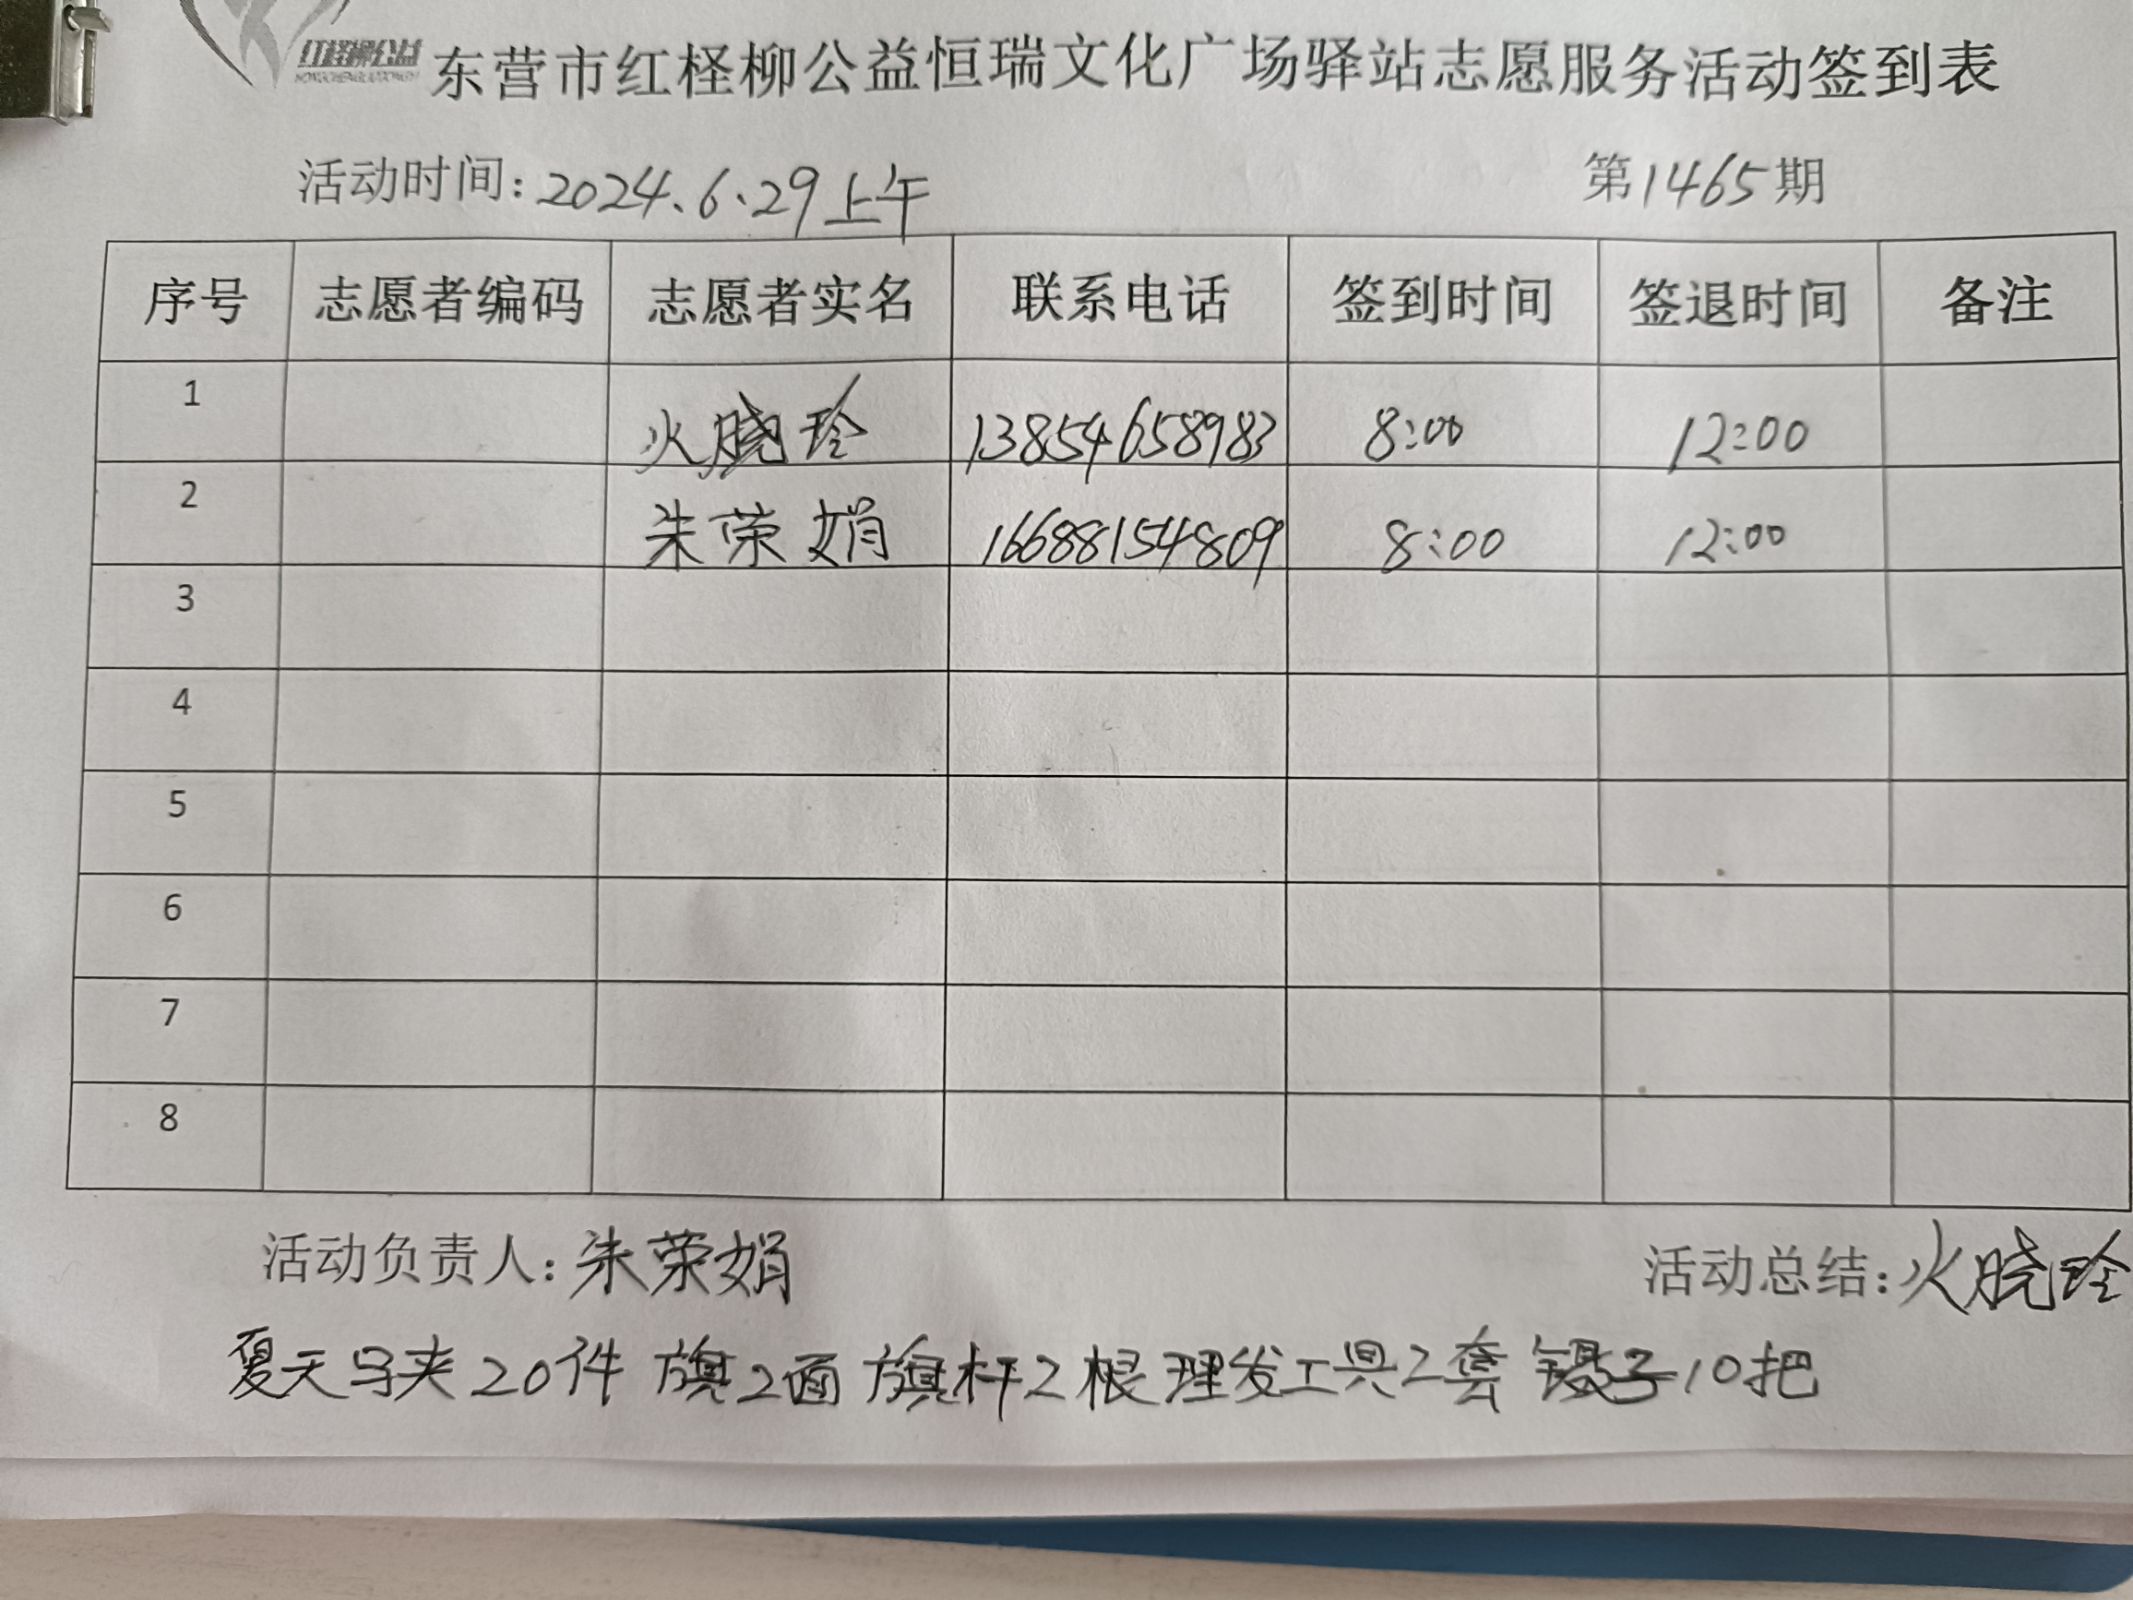 红柽柳公益
东营市红柽柳公益恒瑞文化广场驿站志愿服务活动签到表
活动时间：2024、6、29上午 第1465期
序号 志愿者编码 志愿者实名 联系电话 签到时间 签退时间 备注
1 火晓玲 13854658983 8:00 12:00
2 朱荣娟 16688154809 8:00 12:00
3
4
5
6
7
8
活动负责人：朱荣娟 活动总结：火晓玲
夏天马夹20件 旗2面 旗杆2根 理发工具2套 镊子10把